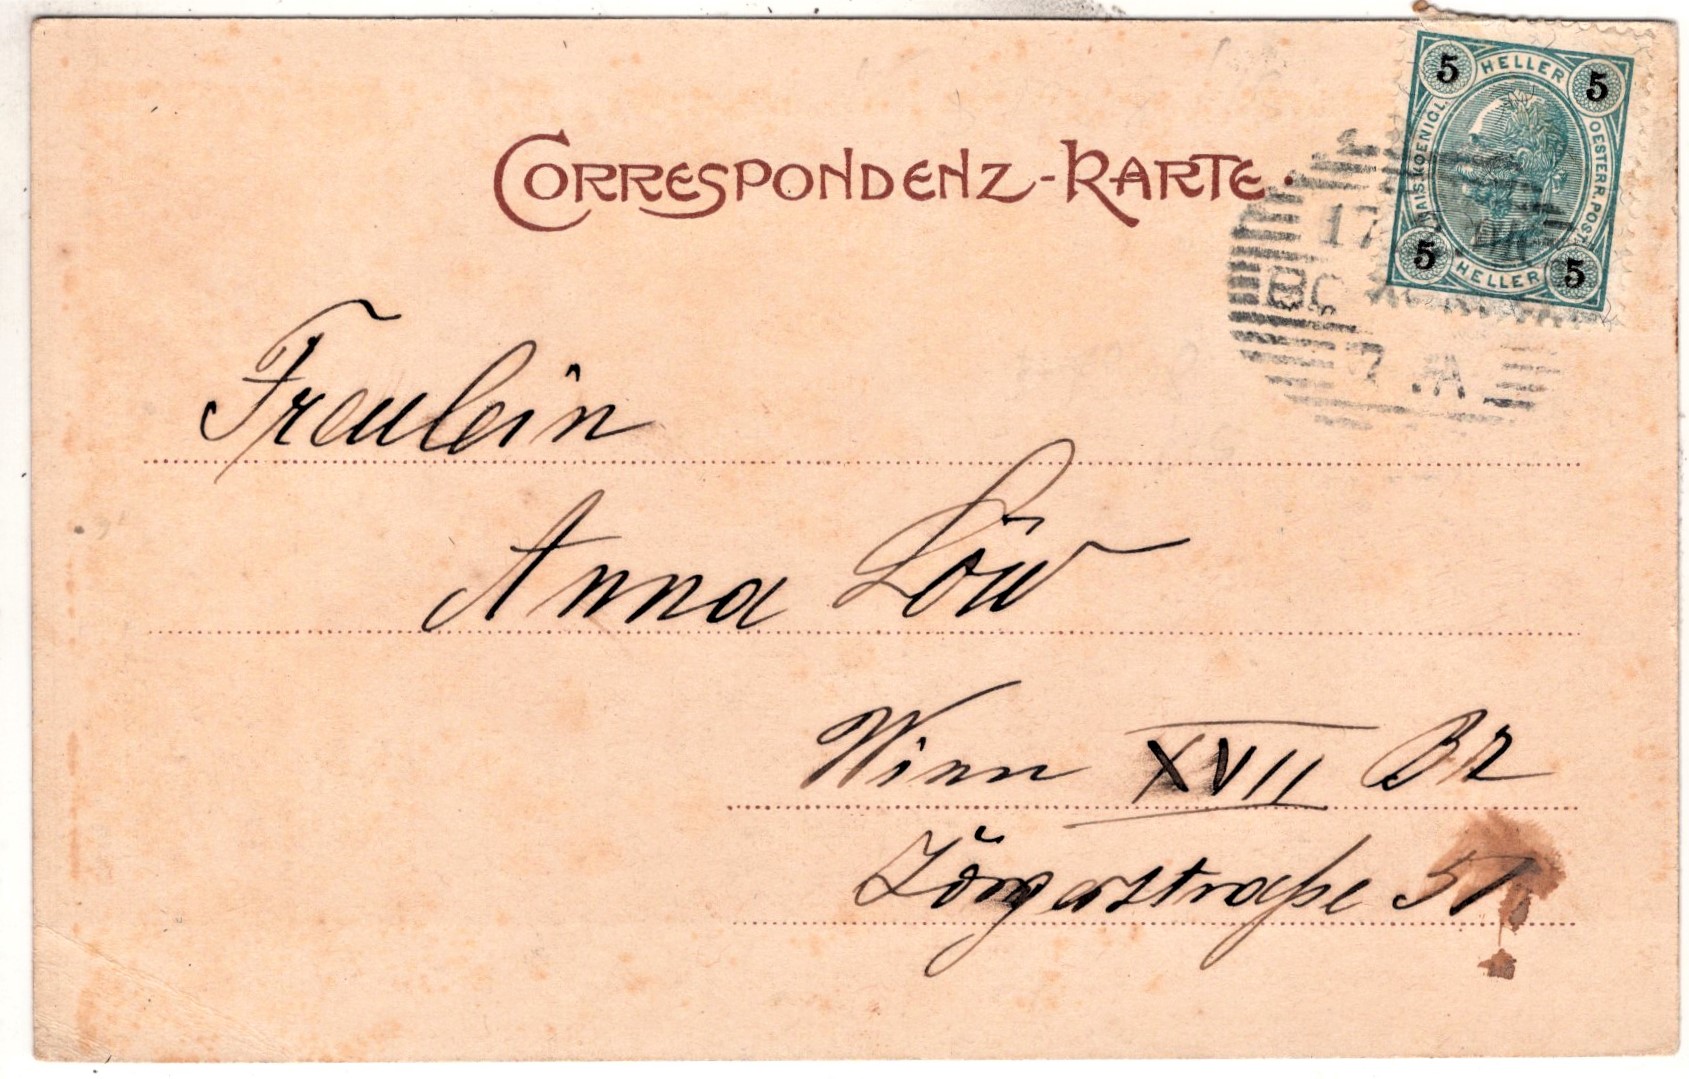 CORRESPONDENZ-KARTE.
5 HELLER 5
KAIS. KOENIGL. OESTERR. POST.
5 HELLER 5
17
7 A
Freulein
Anna Löw
Wien XVII BZ
Jörgerstraße 51